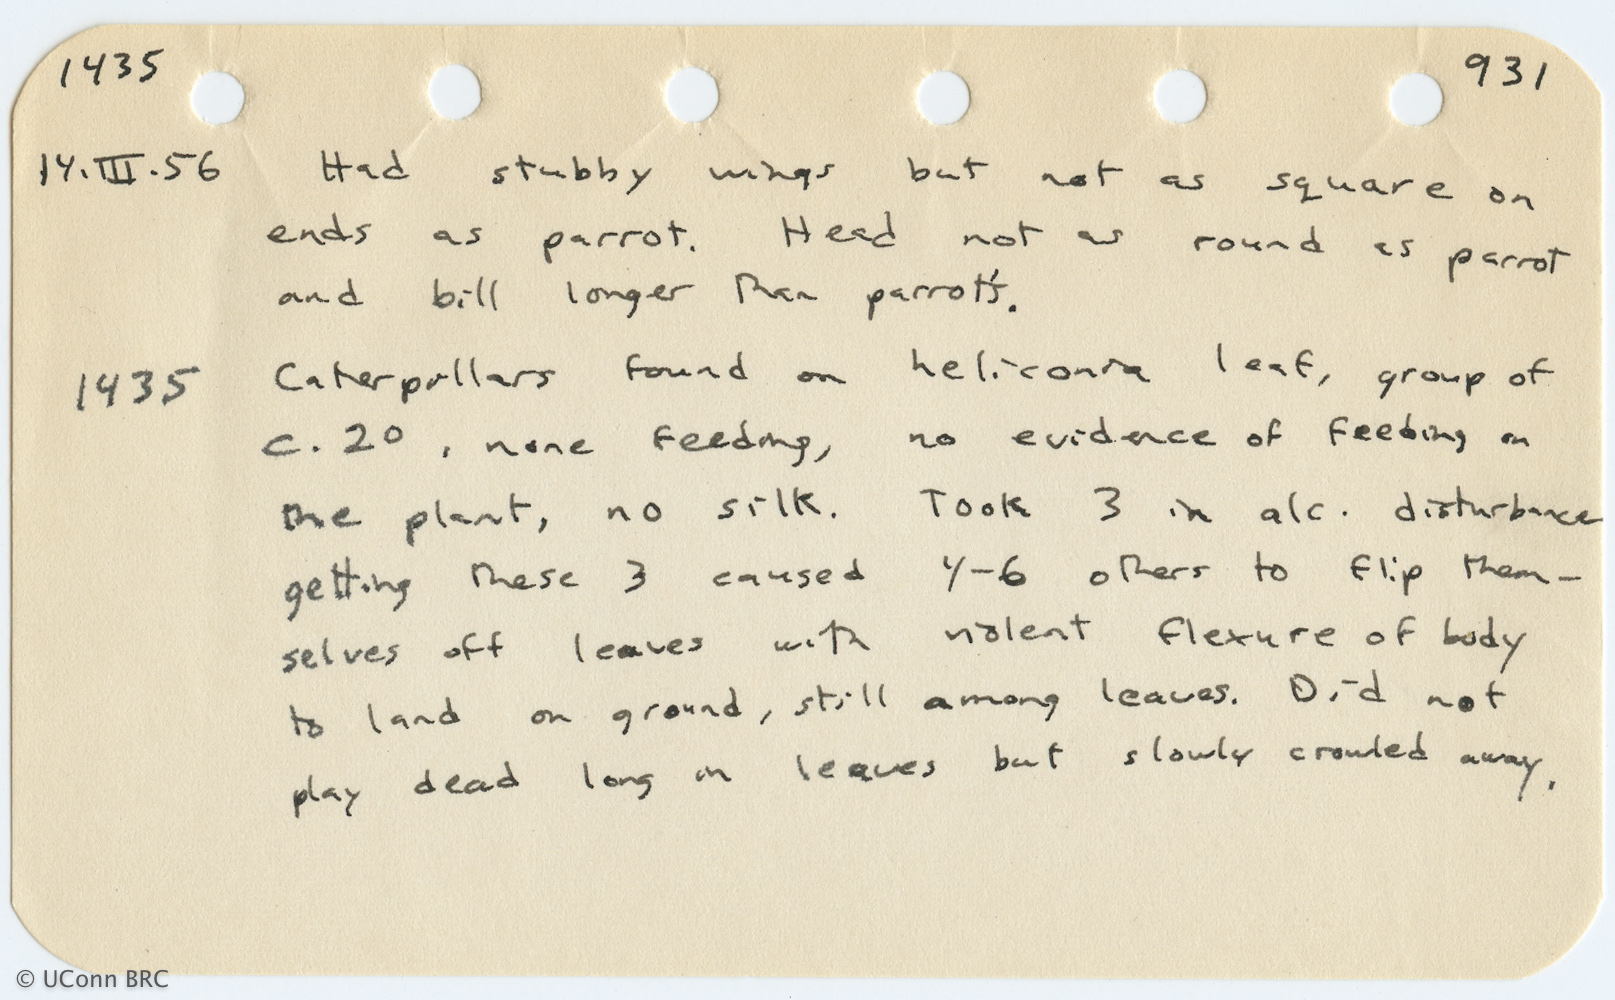 1435 931
14.III.56 Had stubby wings but not as square on
ends as parrot. Head not as round as parrot
and bill longer than parrot's.
1435 Caterpillars found on heliconia leaf, group of
c. 20, none feeding, no evidence of feeding on
the plant, no silk. Took 3 in alc. disturbance
getting these 3 caused 4-6 others to flip them-
selves off leaves with violent flexure of body
to land on ground, still among leaves. Did not
play dead long in leaves but slowly crawled away.
© UConn BRC